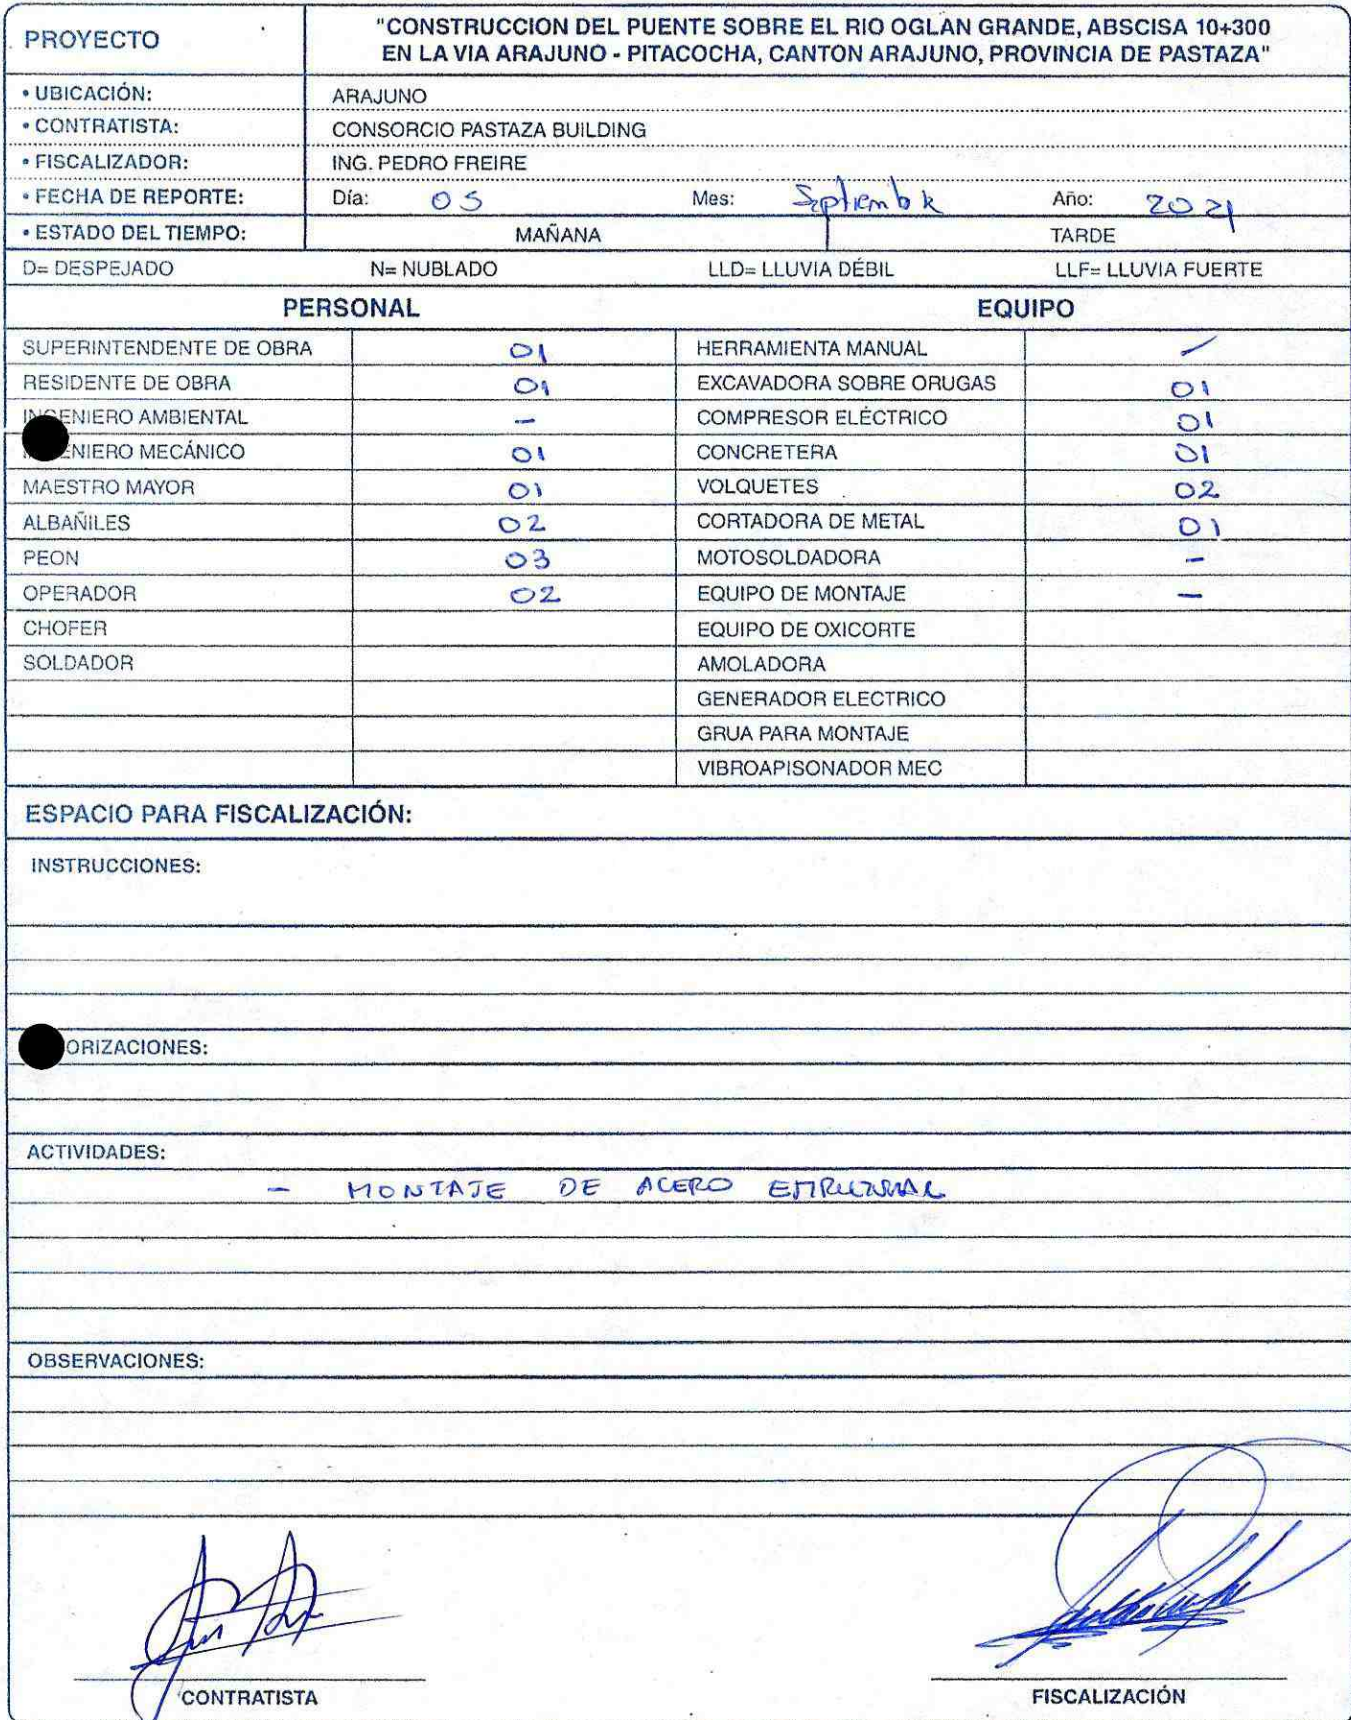 PROYECTO
"CONSTRUCCION DEL PUENTE SOBRE EL RIO OGLAN GRANDE, ABSCISA 10+300
EN LA VIA ARAJUNO - PITACOCHA, CANTON ARAJUNO, PROVINCIA DE PASTAZA"
• UBICACIÓN: ARAJUNO
• CONTRATISTA: CONSORCIO PASTAZA BUILDING
• FISCALIZADOR: ING. PEDRO FREIRE
• FECHA DE REPORTE: Día: 05 Mes: Septiembre Año: 2021
• ESTADO DEL TIEMPO: MAÑANA TARDE
D= DESPEJADO N= NUBLADO LLD= LLUVIA DÉBIL LLF= LLUVIA FUERTE
PERSONAL EQUIPO
SUPERINTENDENTE DE OBRA 01 HERRAMIENTA MANUAL
RESIDENTE DE OBRA 01 EXCAVADORA SOBRE ORUGAS 01
INGENIERO AMBIENTAL - COMPRESOR ELÉCTRICO 01
ENIERO MECÁNICO 01 CONCRETERA 01
MAESTRO MAYOR 01 VOLQUETES 02
ALBAÑILES 02 CORTADORA DE METAL 01
PEON 03 MOTOSOLDADORA -
OPERADOR 02 EQUIPO DE MONTAJE -
CHOFER EQUIPO DE OXICORTE
SOLDADOR AMOLADORA
GENERADOR ELECTRICO
GRUA PARA MONTAJE
VIBROAPISONADOR MEC
ESPACIO PARA FISCALIZACIÓN:
INSTRUCCIONES:
ORIZACIONES:
ACTIVIDADES:
- MONTAJE DE ACERO
OBSERVACIONES:
CONTRATISTA FISCALIZACIÓN